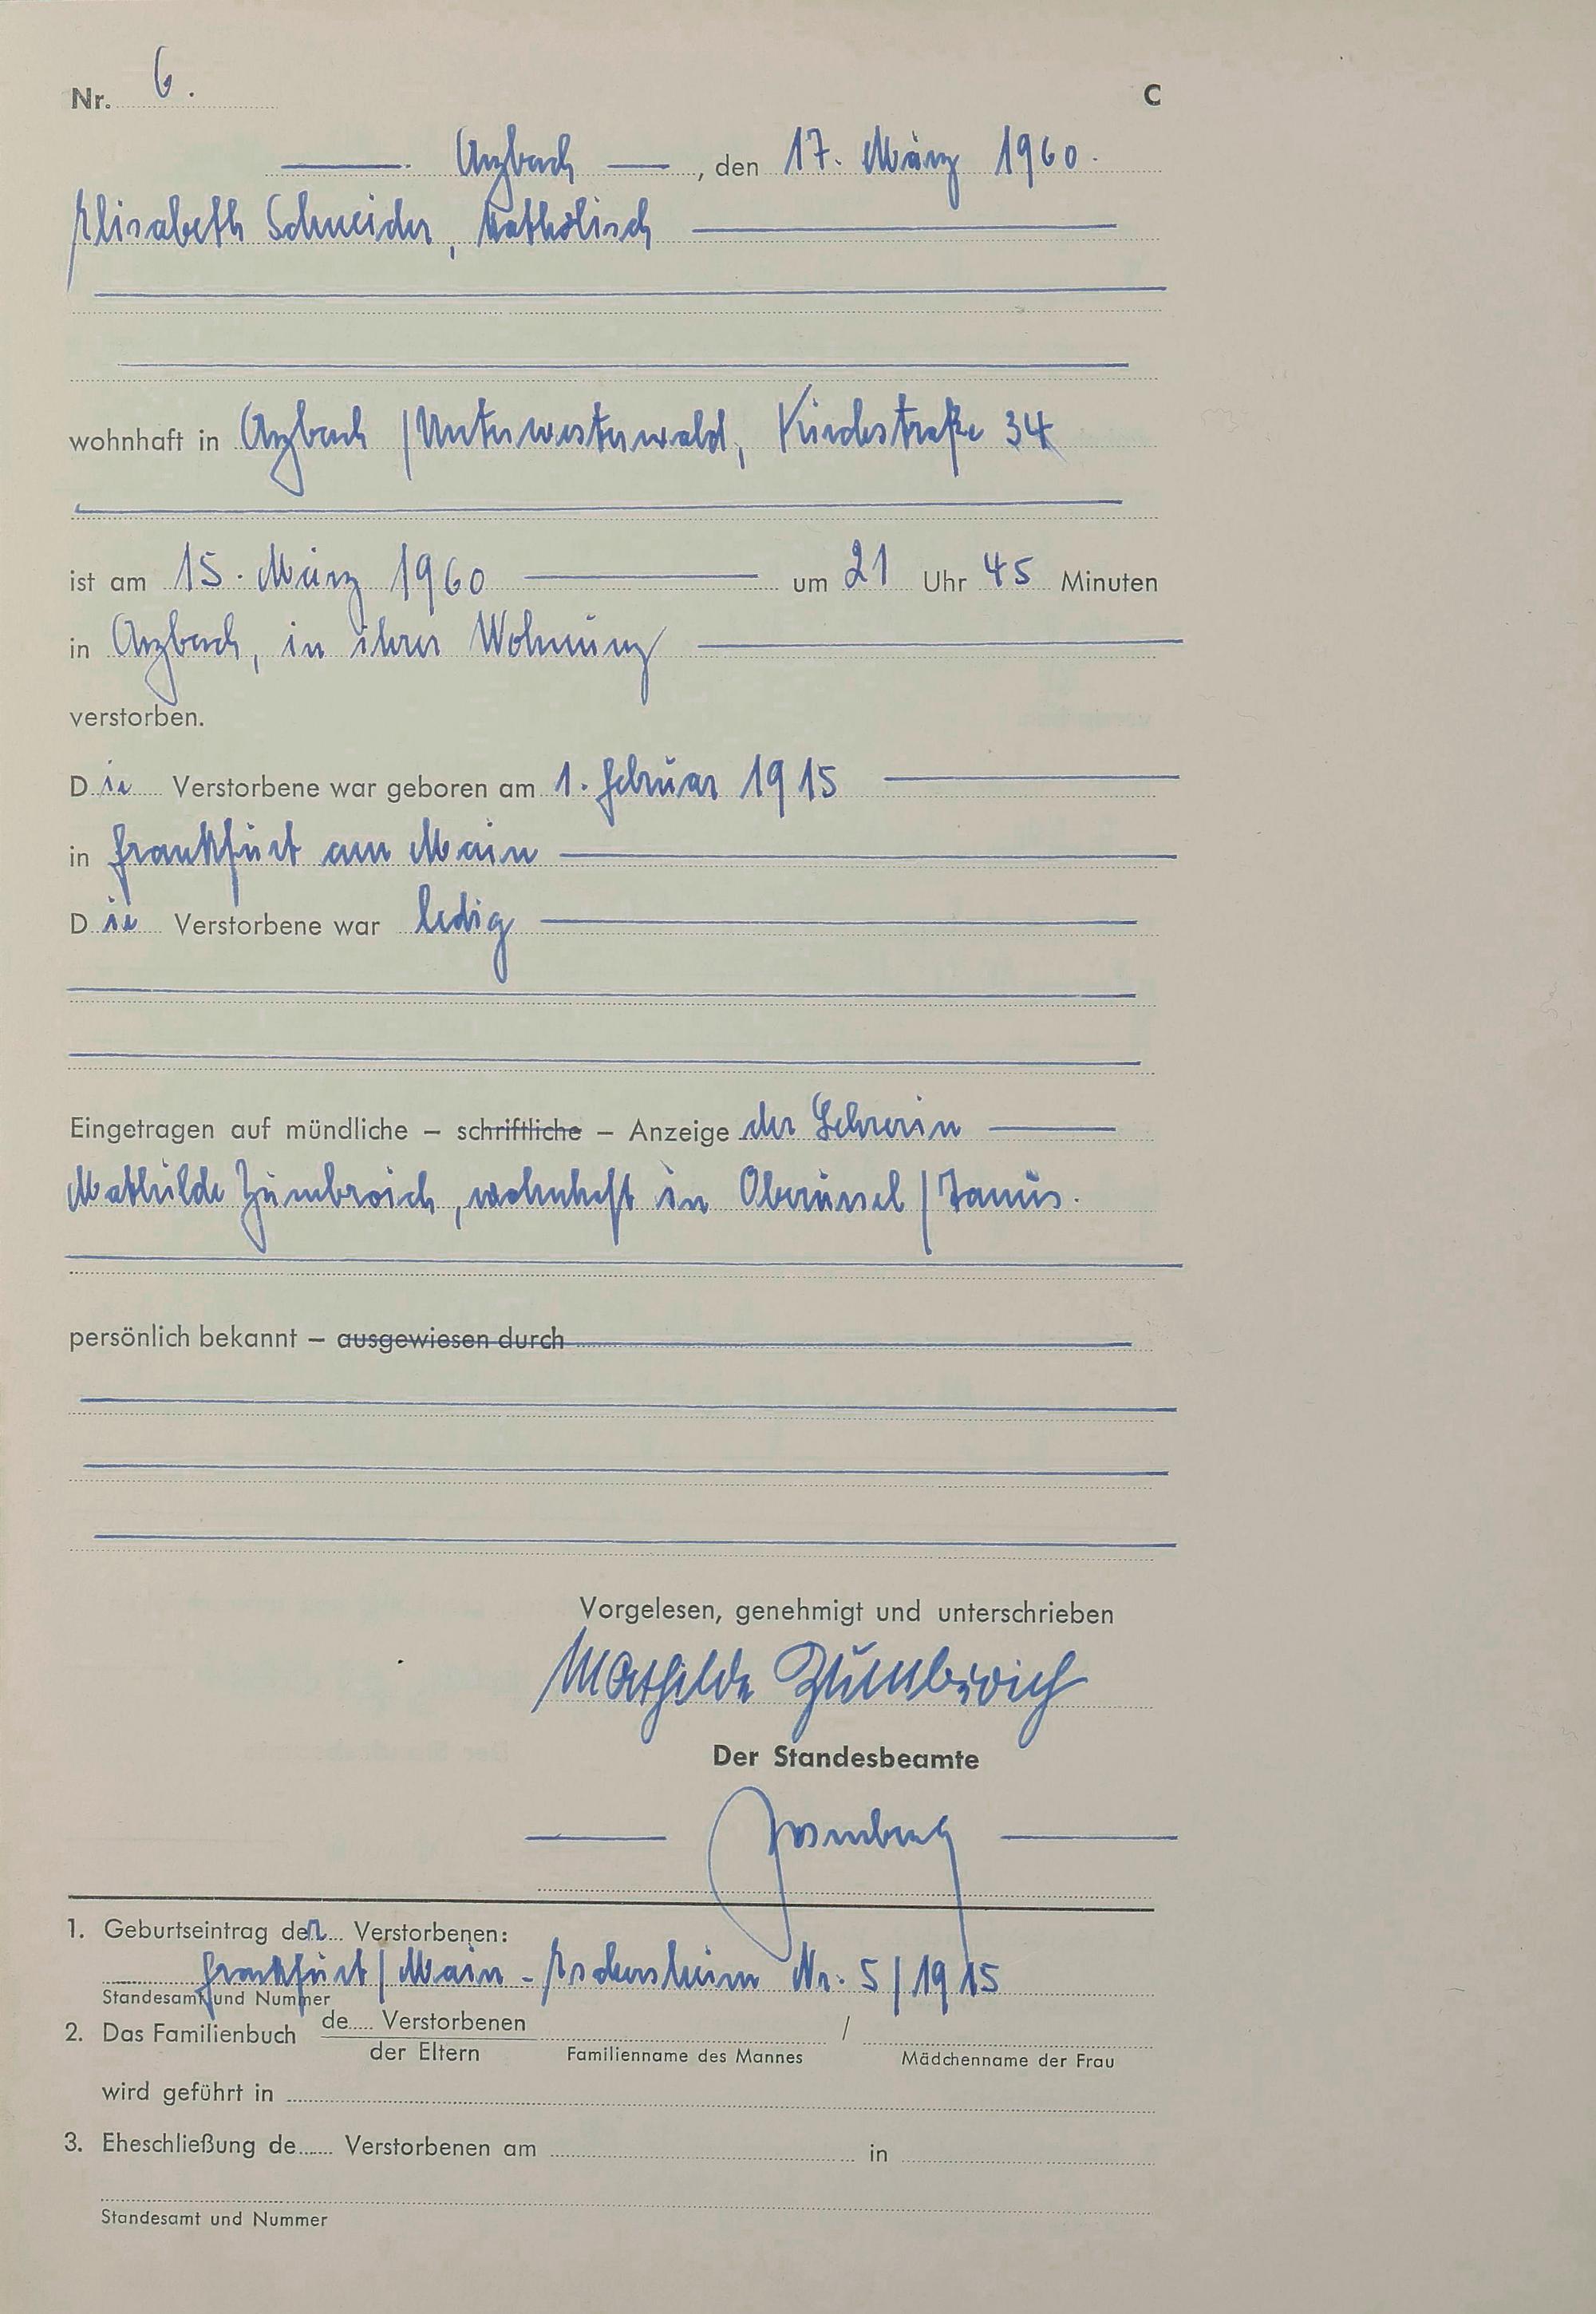 Nr. 6.
C
Arzbach, den 17. März 1960.
Elisabeth Schneider, katholisch
wohnhaft in Arzbach / Unterwesterwald, Kirchstraße 34
ist am 15. März 1960 um 21 Uhr 45 Minuten
in Arzbach, in ihrer Wohnung
verstorben.
Die Verstorbene war geboren am 1. Februar 1915
in Frankfurt am Main
Die Verstorbene war ledig
Eingetragen auf mündliche – schriftliche – Anzeige der Lehrerin
Mathilde Zumbroich, wohnhaft in Oberursel / Taunus.
persönlich bekannt – ausgewiesen durch
Vorgelesen, genehmigt und unterschrieben
Mathilde Zumbroich
Der Standesbeamte
1. Geburtseintrag der Verstorbenen:
Frankfurt / Main - Eschersheim Nr. 5 / 1915
Standesamt und Nummer
2. Das Familienbuch de Verstorbenen /
der Eltern Familienname des Mannes Mädchenname der Frau
wird geführt in
3. Eheschließung de Verstorbenen am in
Standesamt und Nummer